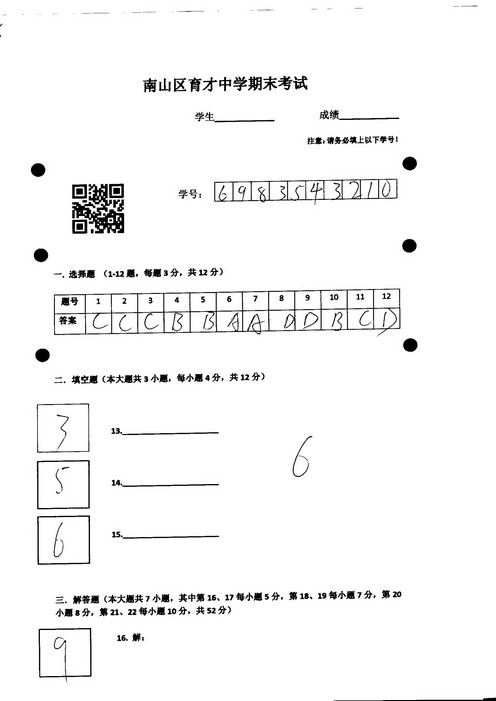 南山区育才中学期末考试
学生__________ 成绩__________
注意：请务必填上以下学号！
学号： 6 9 8 3 5 4 3 2 1 0
一. 选择题 （1-12 题，每题 3 分，共 12 分）
题号 1 2 3 4 5 6 7 8 9 10 11 12
答案 C C C B B A A D D B C D
二．填空题（本大题共 3 小题，每小题 4 分，共 12 分）
3 13.__________
6
5 14.__________
6 15.__________
三．解答题（本大题共 7 小题，其中第 16、17 每小题 5 分，第 18、19 每小题 7 分，第 20
小题 8 分，第 21、22 每小题 10 分，共 52 分）
9 16. 解：